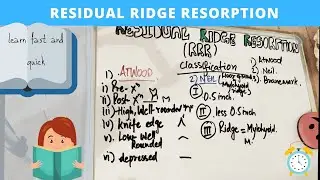 RESIDUAL RIDGE RESORPTION
learn fast and
quick
RESIDUAL RIDGE RESORPTION
(RRR)
classification
1) Atwood
2) Neil
3) Branemark
i) ATWOOD
i) Pre-xⁿ
ii) Post-xⁿ
iii) High, Well rounded
iv) Knife edge
v) Low well
Rounded
vi) depressed —
2) NEIL
I 0.5 inch
II less 0.5 inch
III Ridge = Mylohyd
M.